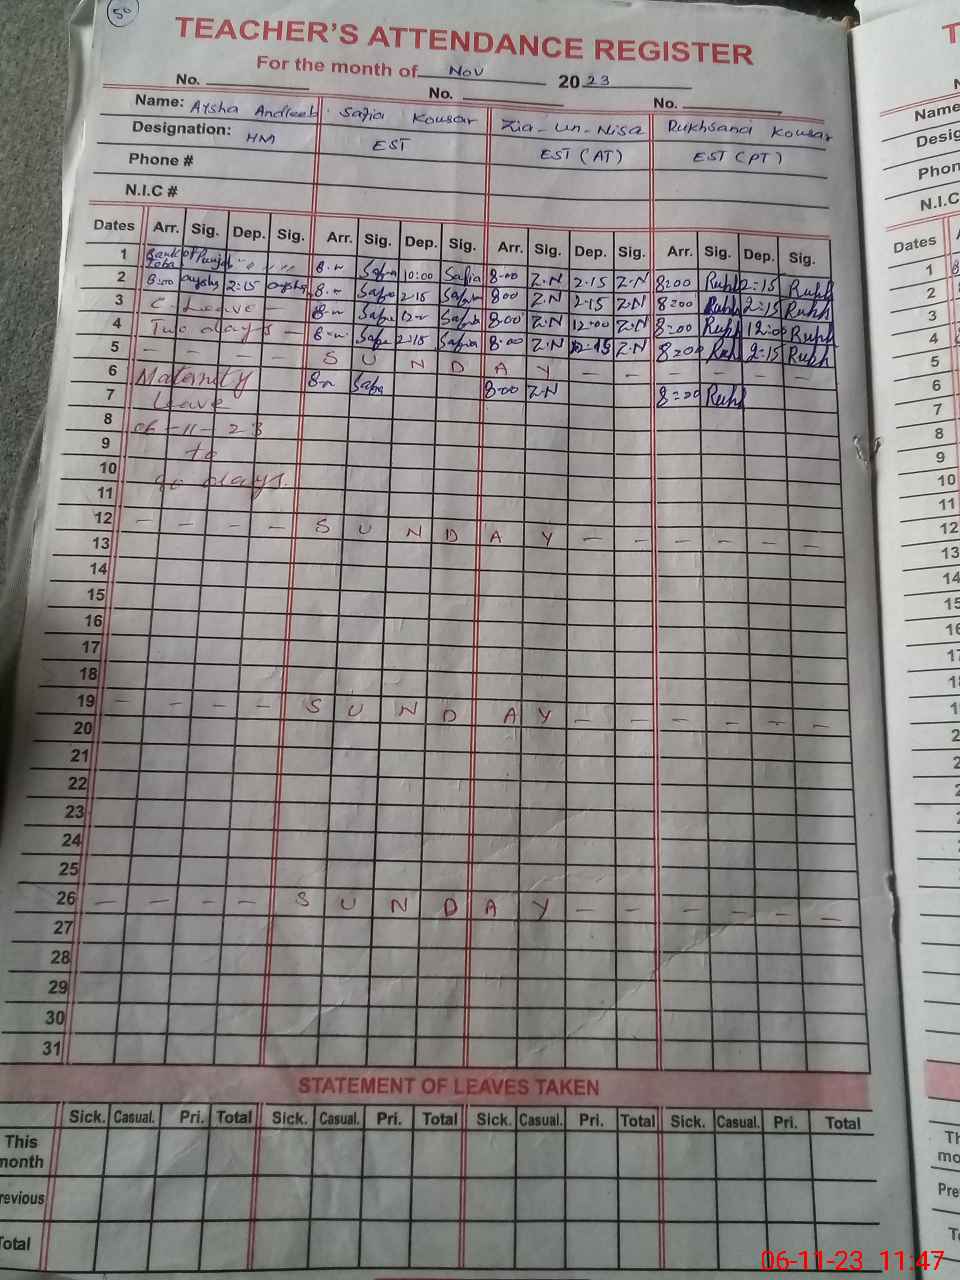 50
TEACHER'S ATTENDANCE REGISTER
For the month of Nov 2023
No. No. No.
Name: Aysha Andleeb Safia Kousar Zia-un-Nisa Rukhsana Kousar
Designation: HM EST EST (AT) EST (PT)
Phone #
N.I.C #
Dates Arr. Sig. Dep. Sig. Arr. Sig. Dep. Sig. Arr. Sig. Dep. Sig. Arr. Sig. Dep. Sig.
1 Bank of Punjab Safia 10:00 Safia 8:00 Z.N 2-15 Z.N 8:00 Rukh 2:15 Rukh
2 8:00 Aysha 2:15 Aysha Safia 2-15 Safia 800 Z.N 2-15 Z.N 8:00 Rukh 2:15 Rukh
3 C. Leave - Safia Safia 8:00 Z.N 12:00 Z.N 8:00 Rukh 12:00 Rukh
4 Two days - Safia 2:15 Safia 8:00 Z.N 2-15 Z.N 8:00 Rukh 2:15 Rukh
5 - - - - S U N D A Y - - - - - -
6 Maternity Safia 8:00 Z.N 8:00 Rukh
7 Leave
8 06-11-23
9 to
10 90 days.
11
12 - - - - S U N D A Y - - - - - -
13
14
15
16
17
18
19 - - - - S U N D A Y - - - - - -
20
21
22
23
24
25
26 - - - - S U N D A Y - - - - - -
27
28
29
30
31
STATEMENT OF LEAVES TAKEN
Sick. Casual. Pri. Total Sick. Casual. Pri. Total Sick. Casual. Pri. Total Sick. Casual. Pri. Total
This
month
revious
Total
Name:
Desig
Phon
N.I.C
Dates
1
2
3
4
5
6
7
8
9
10
11
12
13
14
15
16
Th
mo
Pre
06-11-23 11:47